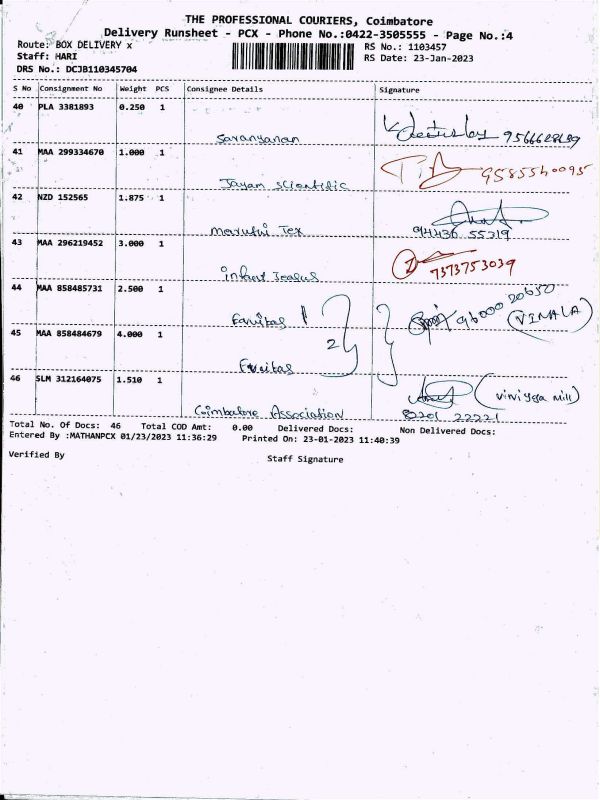 THE PROFESSIONAL COURIERS, Coimbatore
Delivery Runsheet - PCX - Phone No.:0422-3505555 - Page No.:4
Route: BOX DELIVERY x
RS No.: 1103457
Staff: HARI
RS Date: 23-Jan-2023
DRS No.: DCJB110345704
S No Consignment No Weight PCS Consignee Details Signature
40 PLA 3381893 0.250 1
Saravanan
41 MAA 299334670 1.000 1
9585540095
Jayam Scientific
42 NZD 152565 1.875 1
Maruthi Tex 94436 55719
43 MAA 296219452 3.000 1
7373753039
Infant Jesus
44 MAA 858485731 2.500 1
96000 20650
(VIMALA)
45 MAA 858484679 4.000 1
2
46 SLM 312164075 1.510 1
Coimbatore Association 82201 22221
Total No. Of Docs: 46 Total COD Amt: 0.00 Delivered Docs: Non Delivered Docs:
Entered By :MATHANPCX 01/23/2023 11:36:29 Printed On: 23-01-2023 11:40:39
Verified By
Staff Signature